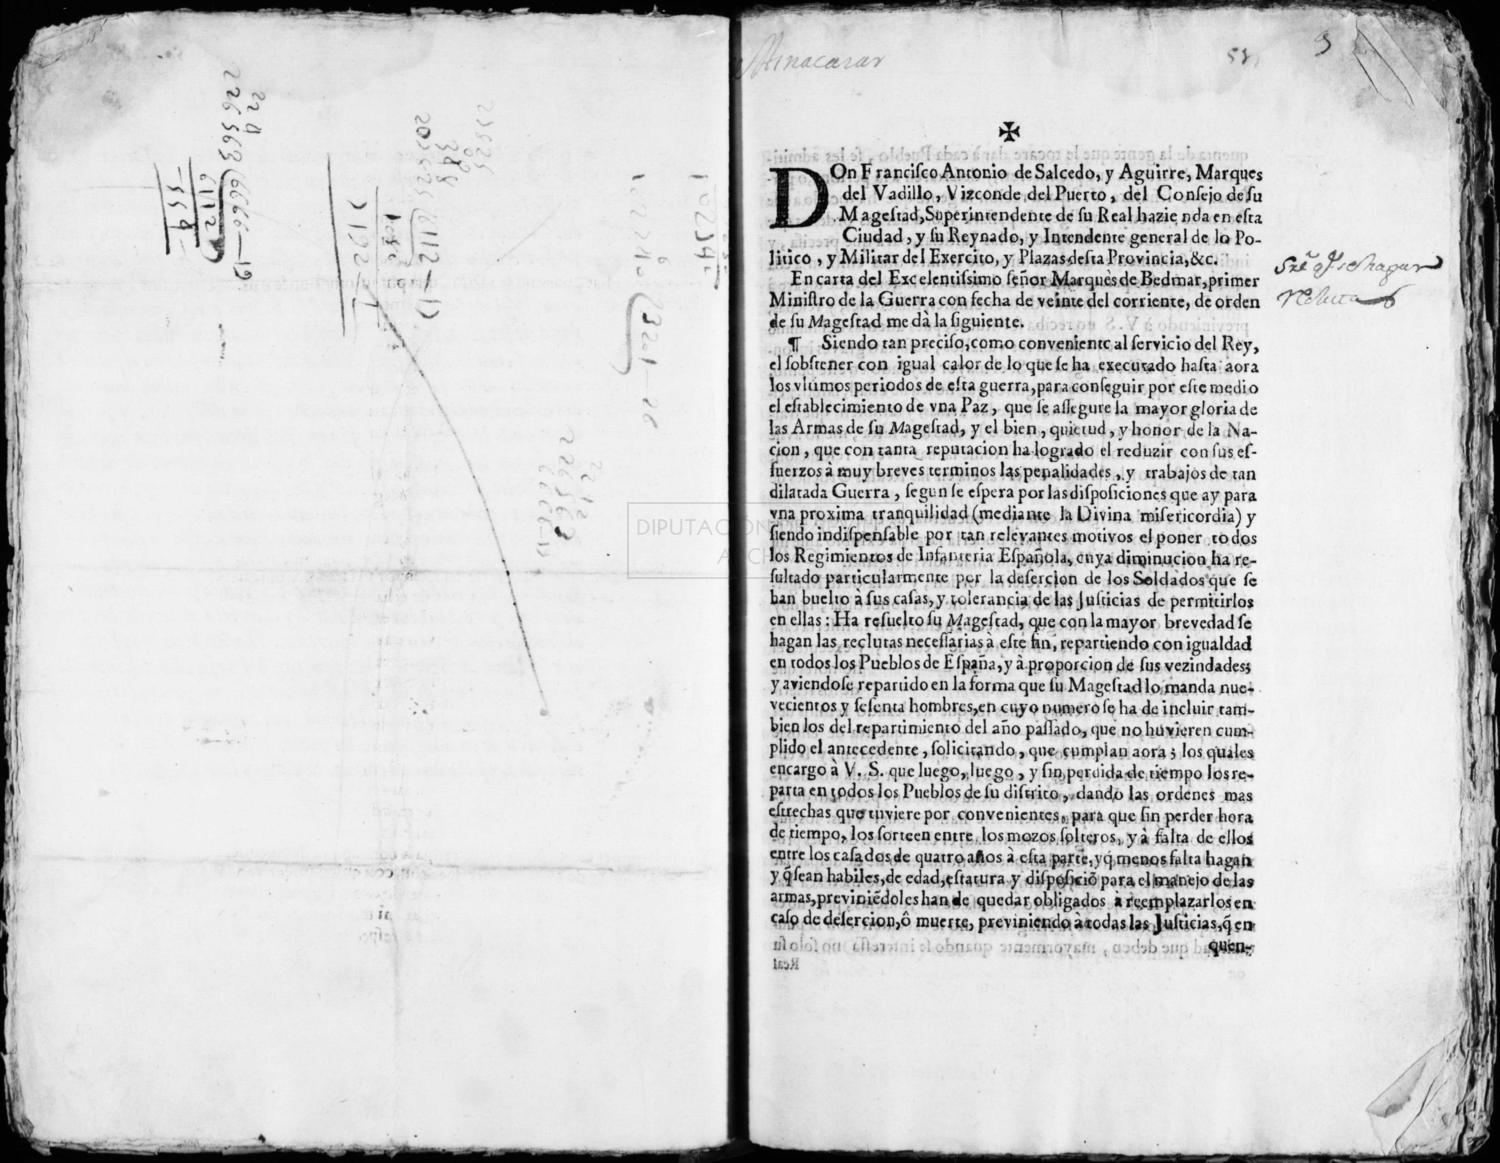 226563(6666—19
61121
5549
203625(6112—1)
1086
7192—1
10228(3201—26
10234
226563
6666—19
DIPUTACIÓN
ARCH
Almacarar
52
✠
DOn Franciſco Antonio de Salcedo, y Aguirre, Marques
del Vadillo, Vizconde del Puerto, del Conſejo de ſu
Mageſtad, Superintendente de ſu Real hazienda en eſta
Ciudad, y ſu Reynado, y Intendente general de lo Po-
litico, y Militar del Exercito, y Plazas deſta Provincia, &c.
En carta del Excelentiſsimo ſeñor Marquès de Bedmar, primer
Miniſtro de la Guerra con fecha de veinte del corriente, de orden
de ſu Mageſtad me dà la ſiguiente.
¶ Siendo tan preciſo, como conveniente al ſervicio del Rey,
el ſobſtener con igual calor de lo que ſe ha executado haſta aora
los vltimos periodos de eſta guerra, para conſeguir por eſte medio
el eſtablecimiento de vna Paz, que ſe aſſegure la mayor gloria de
las Armas de ſu Mageſtad, y el bien, quietud, y honor de la Na-
cion, que con tanta reputacion ha logrado el reduzir con ſus eſ-
fuerzos à muy breves terminos las penalidades, y trabajos de tan
dilatada Guerra, ſegun ſe eſpera por las diſpoſiciones que ay para
vna proxima tranquilidad (mediante la Divina miſericordia) y
ſiendo indiſpenſable por tan relevantes motivos el poner todos
los Regimientos de Infanteria Eſpañola, cuya diminucion ha re-
ſultado particularmente por la deſercion de los Soldados que ſe
han buelto à ſus caſas, y tolerancia de las Juſticias de permitirlos
en ellas: Ha reſuelto ſu Mageſtad, que con la mayor brevedad ſe
hagan las reclutas neceſſarias à eſte fin, repartiendo con igualdad
en todos los Pueblos de Eſpaña, y à proporcion de ſus vezindades;
y aviendoſe repartido en la forma que ſu Mageſtad lo manda nue-
vecientos y ſeſenta hombres, en cuyo numero ſe ha de incluir tam-
bien los del repartimiento del año paſſado, que no huvieren cum-
plido el antecedente, ſolicitando, que cumplan aora; los quales
encargo à V. S. que luego, luego, y ſin perdida de tiempo los re-
parta en todos los Pueblos de ſu diſtrito, dando las ordenes mas
eſtrechas que tuviere por convenientes, para que ſin perder hora
de tiempo, los ſorteen entre los mozos ſolteros, y à falta de ellos
entre los caſados de quatro años à eſta parte, y q̃ menos falta hagan
y q̃ ſean habiles, de edad, eſtatura y diſpoſiciõ para el manejo de las
armas, previniẽdoles han de quedar obligados à reemplazarlos en
caſo de deſercion, ô muerte, previniendo à todas las Juſticias, q̃ en
quen-